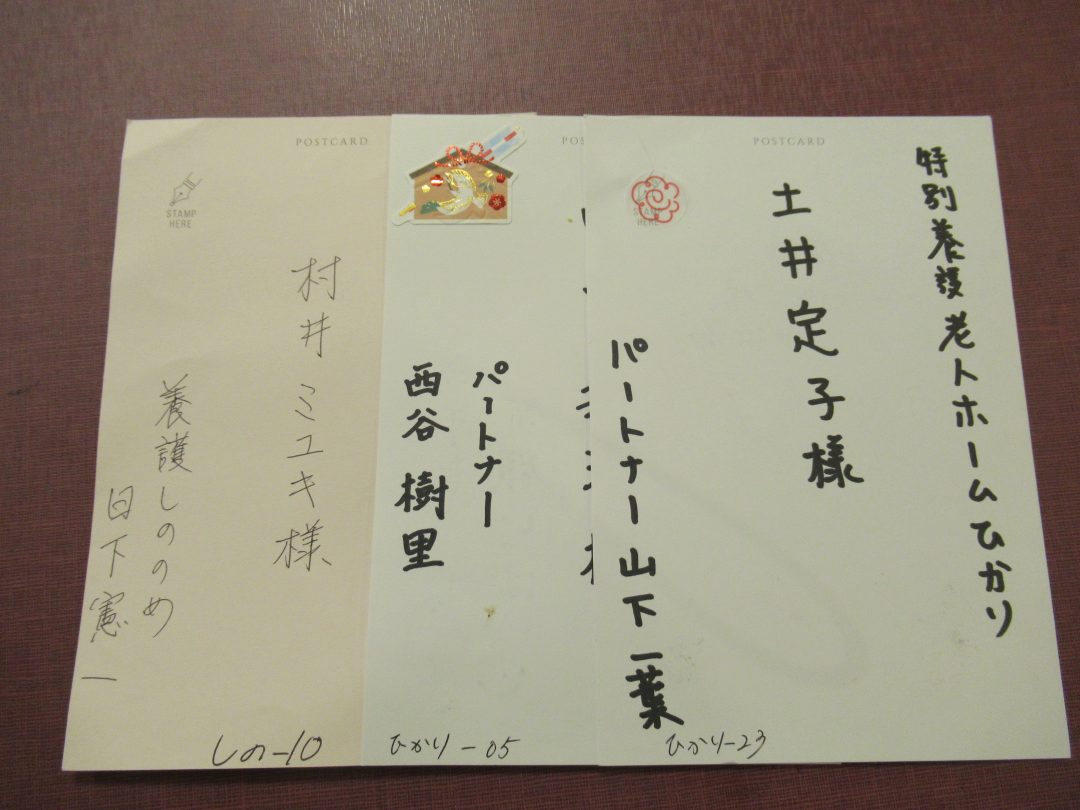 POSTCARD
STAMP
HERE
村井ミユキ様
養護しののめ
日下憲一
しの-10
パートナー
西谷樹里
ひかり-05
POSTCARD
特別養護老人ホームひかり
土井定子様
パートナー山下一葉
ひかり-23